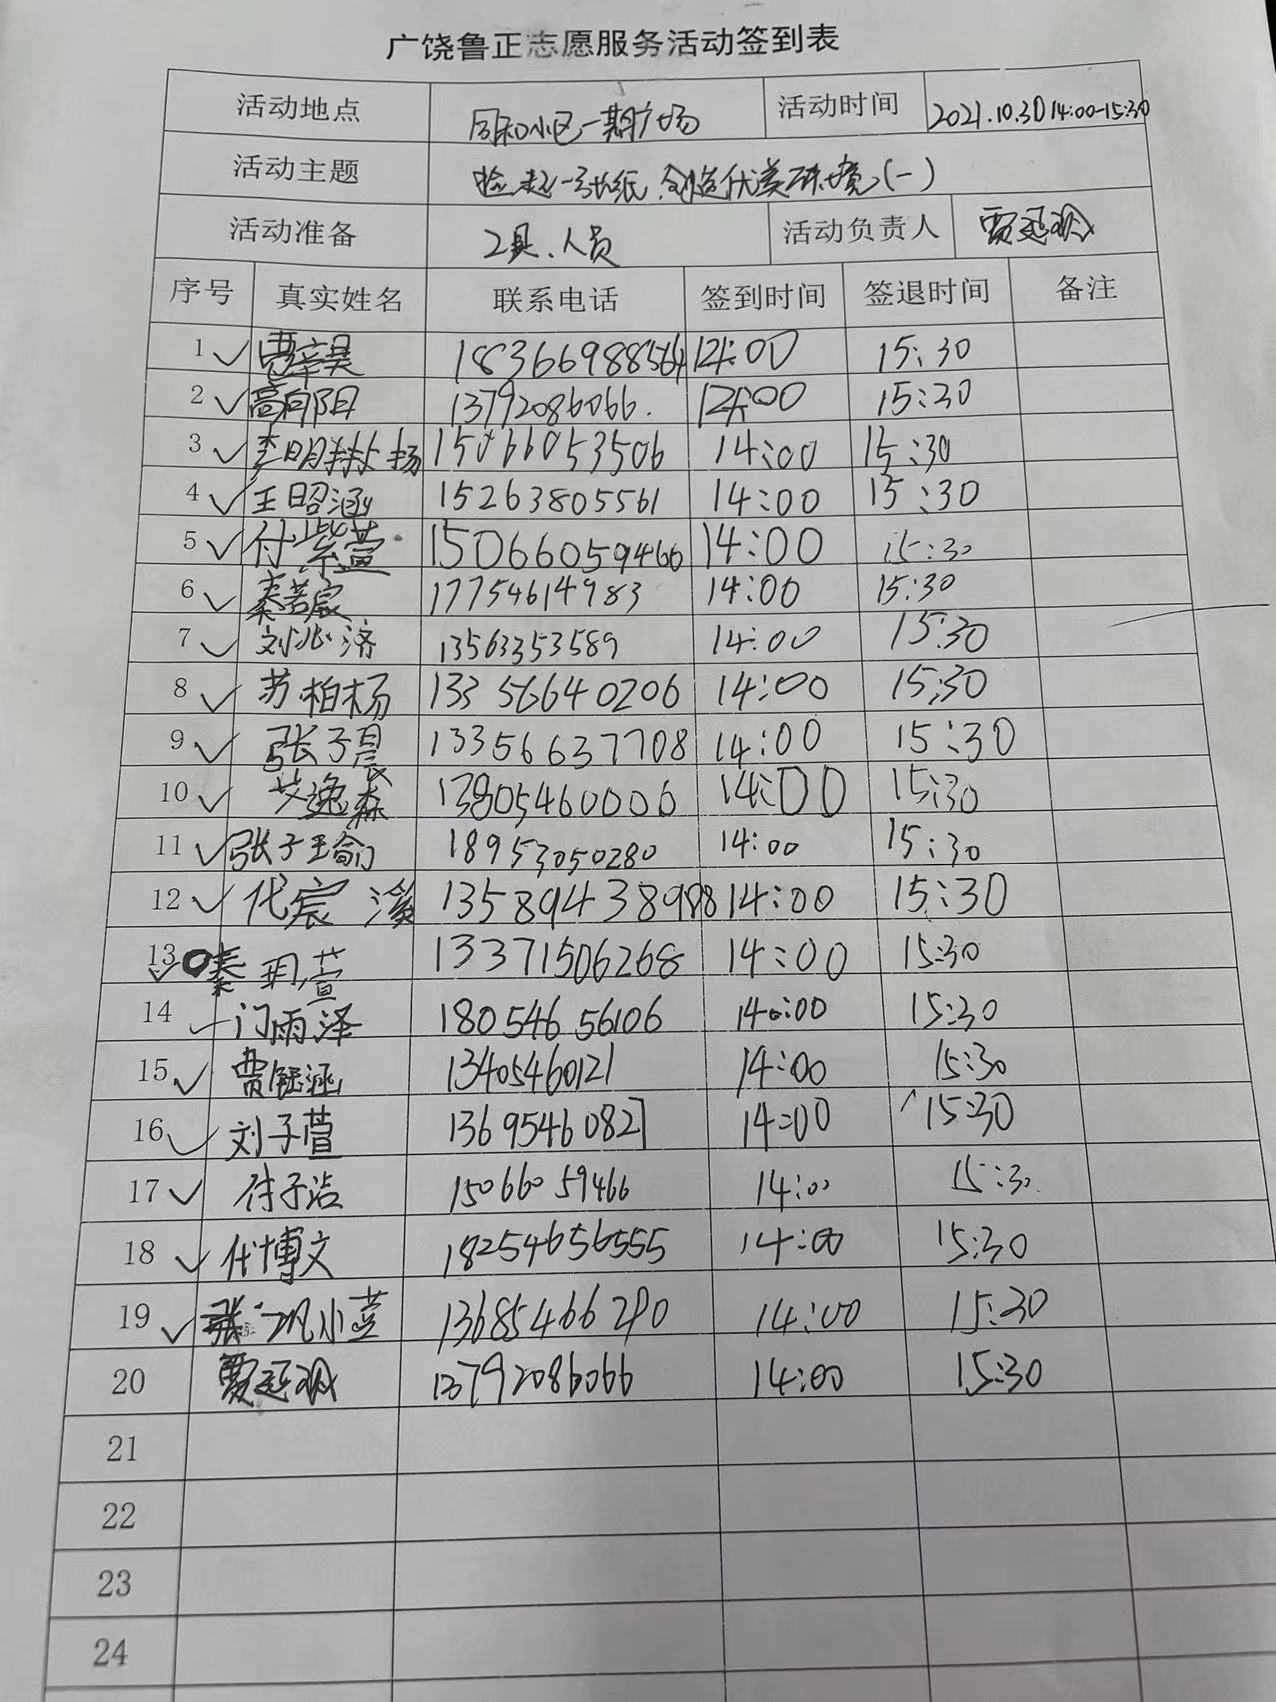 广饶鲁正志愿服务活动签到表
活动地点 同和小区一期广场 活动时间 2021.10.30 14:00-15:30
活动主题 捡起一张纸,创造优美环境(一)
活动准备 工具、人员 活动负责人 贾延
序号 真实姓名 联系电话 签到时间 签退时间 备注
1 ✓ 18366988564 14:00 15:30
2 ✓ 高向阳 13792086066. 14:00 15:30
3 ✓ 李明林扬 15066053506 14:00 15:30
4 ✓ 王昭涵 15263805561 14:00 15:30
5 ✓ 付紫萱 15066059466 14:00 15:30
6 ✓ 秦若宸 17754614983 14:00 15:30
7 ✓ 刘兆济 13563353589 14:00 15:30
8 ✓ 苏柏杨 13356640206 14:00 15:30
9 ✓ 张子晨 13356637708 14:00 15:30
10 ✓ 艾逸森 13805460006 14:00 15:30
11 ✓ 张子瑜 18953050280 14:00 15:30
12 ✓ 代宸溪 13589438988 14:00 15:30
13 ✓ 秦玥萱 13371506268 14:00 15:30
14 ✓ 门雨泽 18054656106 14:00 15:30
15 ✓ 贾涵 13405460121 14:00 15:30
16 ✓ 刘子萱 13695460827 14:00 15:30
17 ✓ 付子洁 15066059466 14:00 15:30
18 ✓ 代博文 18254656555 14:00 15:30
19 ✓ 张 13685466290 14:00 15:30
20 贾延 13792086066 14:00 15:30
21
22
23
24